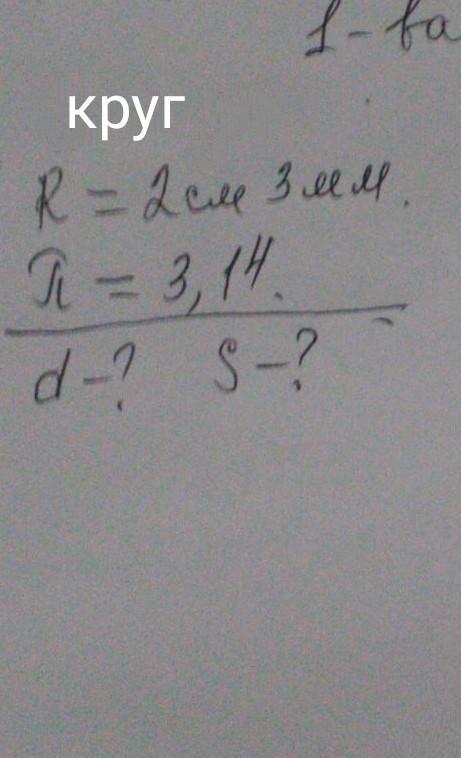 1-ва
круг
R = 2см 3мм.
π = 3,14.
d-? S-?